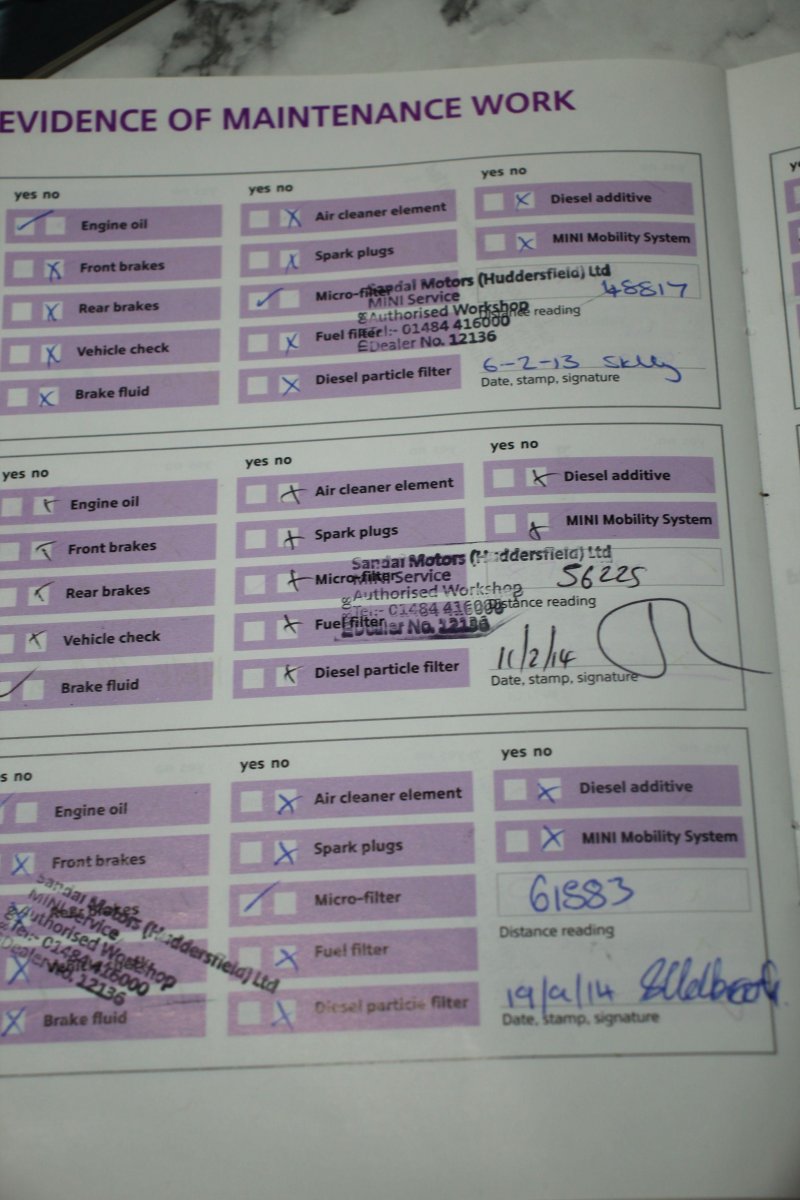 EVIDENCE OF MAINTENANCE WORK
yes no
Engine oil
Front brakes
Rear brakes
Vehicle check
Brake fluid
yes no
Air cleaner element
Spark plugs
Micro-filter
Fuel filter
Diesel particle filter
yes no
Diesel additive
MINI Mobility System
Sandal Motors (Huddersfield) Ltd
MINI Service
Authorised Workshop
Tel:- 01484 416000
Dealer No. 12136
48817
Distance reading
6-2-13
Date, stamp, signature
yes no
Engine oil
Front brakes
Rear brakes
Vehicle check
Brake fluid
yes no
Air cleaner element
Spark plugs
Micro-filter
Fuel filter
Diesel particle filter
yes no
Diesel additive
MINI Mobility System
Sandal Motors (Huddersfield) Ltd
MINI Service
Authorised Workshop
Tel:- 01484 416000
Dealer No. 12136
56225
Distance reading
11/2/14
Date, stamp, signature
s no
Engine oil
Front brakes
Brake fluid
Sandal Motors (Huddersfield) Ltd
MINI Service
Authorised Workshop
Tel:- 01484 416000
Dealer No. 12136
yes no
Air cleaner element
Spark plugs
Micro-filter
Fuel filter
Diesel particle filter
yes no
Diesel additive
MINI Mobility System
61883
Distance reading
19/9/14
Date, stamp, signature